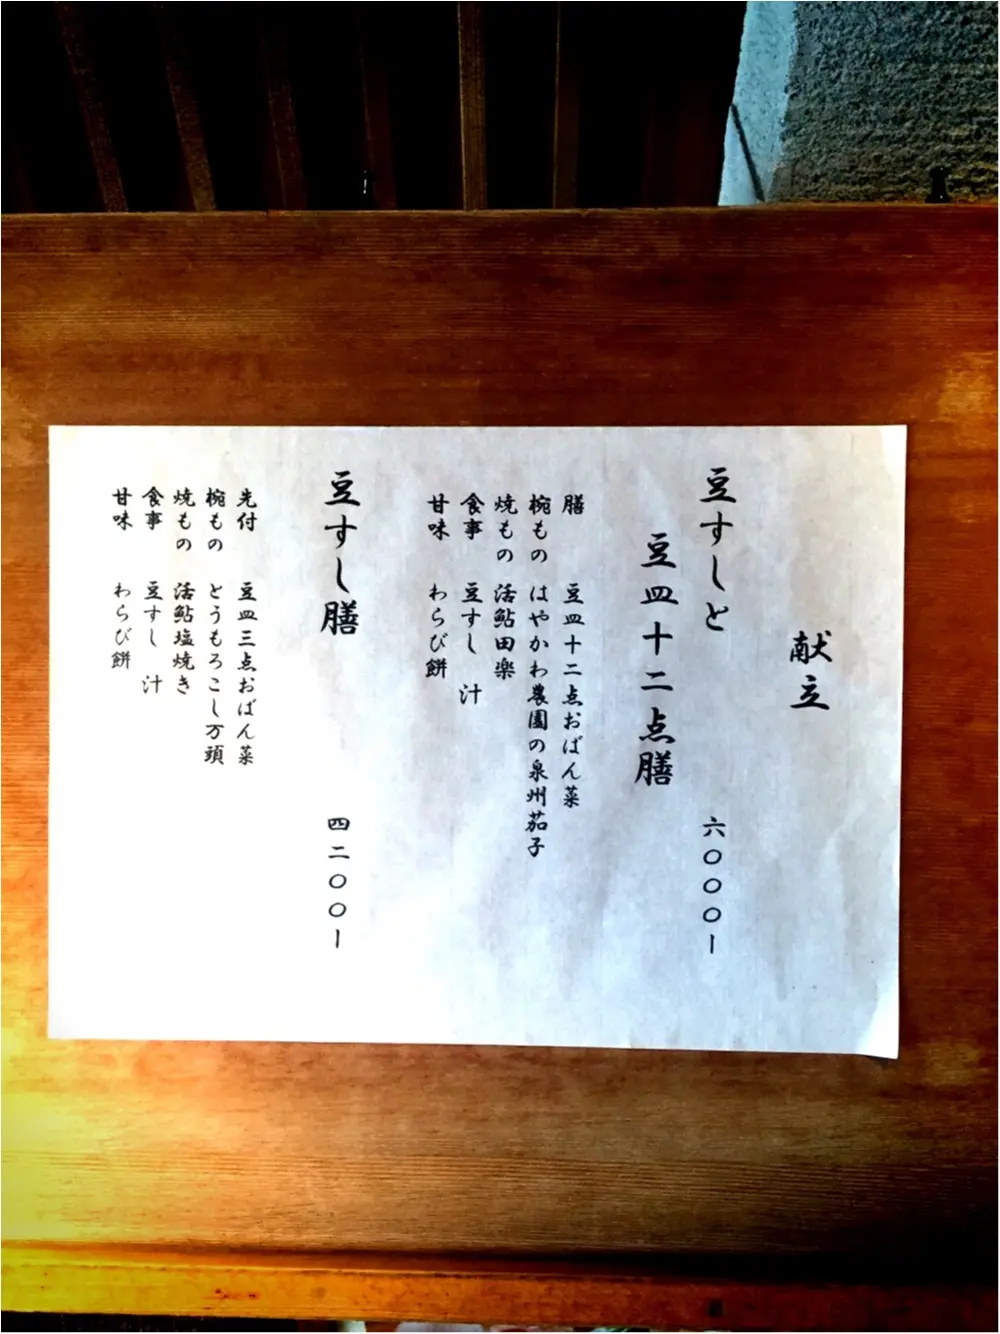 献立
豆すしと
豆皿十二点膳
六〇〇〇ー
膳 豆皿十二点おばん菜
椀もの はやかわ農園の泉州茄子
焼もの 活鮎田楽
食事 豆すし 汁
甘味 わらび餅
豆すし膳 四二〇〇ー
先付 豆皿三点おばん菜
椀もの とうもろこし万頭
焼もの 活鮎塩焼き
食事 豆すし 汁
甘味 わらび餅